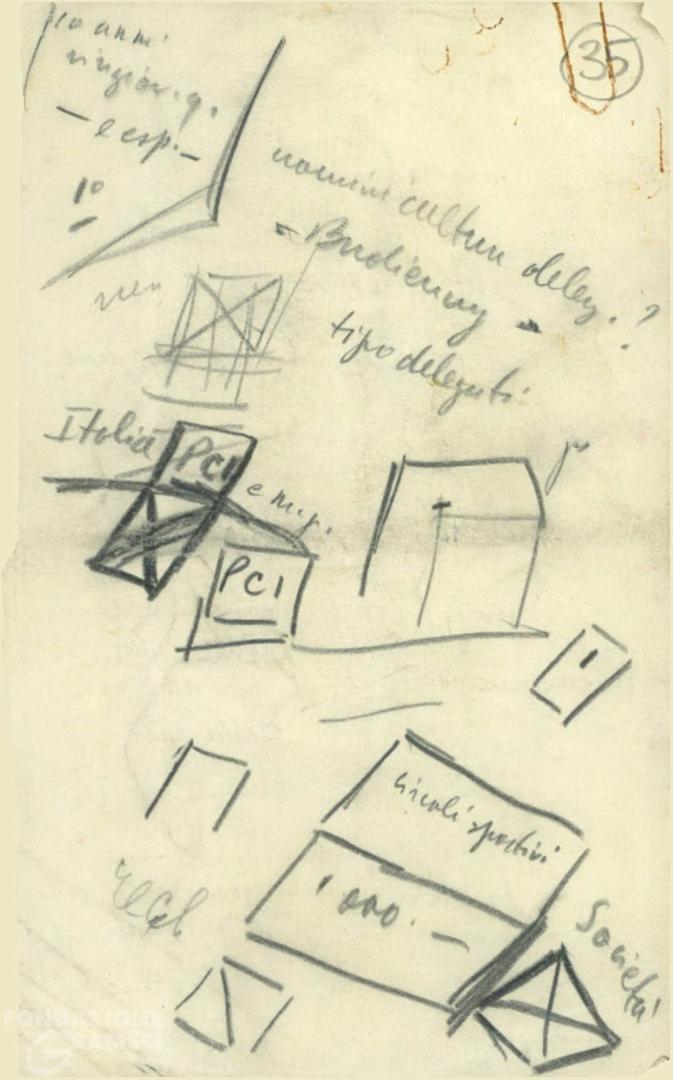 35
10 anni
ringiov. q.
– e esp. –
1º
uomini cultura deleg. ?
– Budienny –
tipo delegati
Italia
PCI
e m.p.
PCI
circoli sportivi
1000. –
Società
FONDAZIONE
GRAMSCI